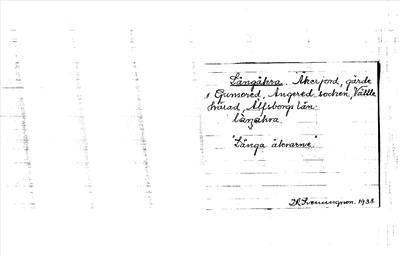 Långåkra. Åkerjord, gärde
i Gunnored, Angered socken, Vättle
härad, Älfsborgs län.
långakra.
"Långa åkrarne"
1938